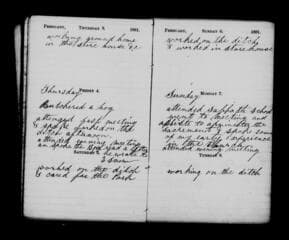 FEBRUARY, THURSDAY 3. 1881.
working ground home
in the store house &c
FRIDAY 4.
Thursday
Butchered a hog
attended fast meeting
worked on the
ditch afternoon
attended evening meeting
SATURDAY 5.
worked on the ditch
& cared for the
FEBRUARY, SUNDAY 6. 1881.
worked on the ditch
& worked in store house
MONDAY 7.
Sunday
attended Sabbath School
went to meeting and
to administer the
Sacrament & spoke some
of my early experience
in the Church
attended evening meeting
TUESDAY 8.
working on the ditch